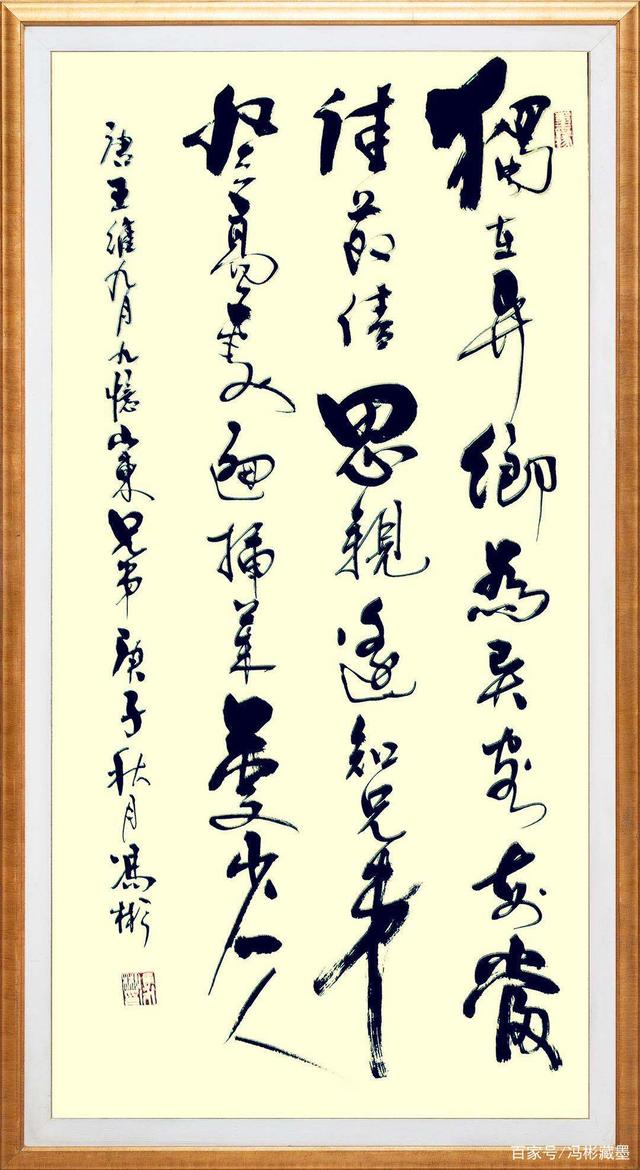 獨在异鄉為異客每
佳節倍思親遙知兄弟
登高處遍插茱萸少一人
唐王維九月九憶山東兄弟庚子秋月馮彬
百家号/冯彬藏墨